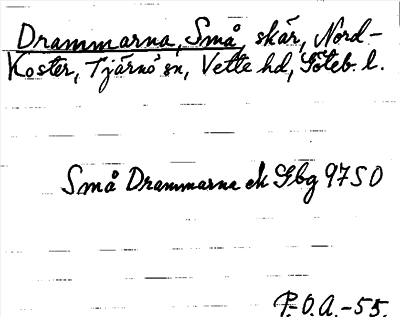 Drammarna, Små, skär, Nord-
Koster, Tjärnö sn, Vette hd, Göteb. l.
Små Drammarne ek Gbg 97 SO
P.O.A.-55.